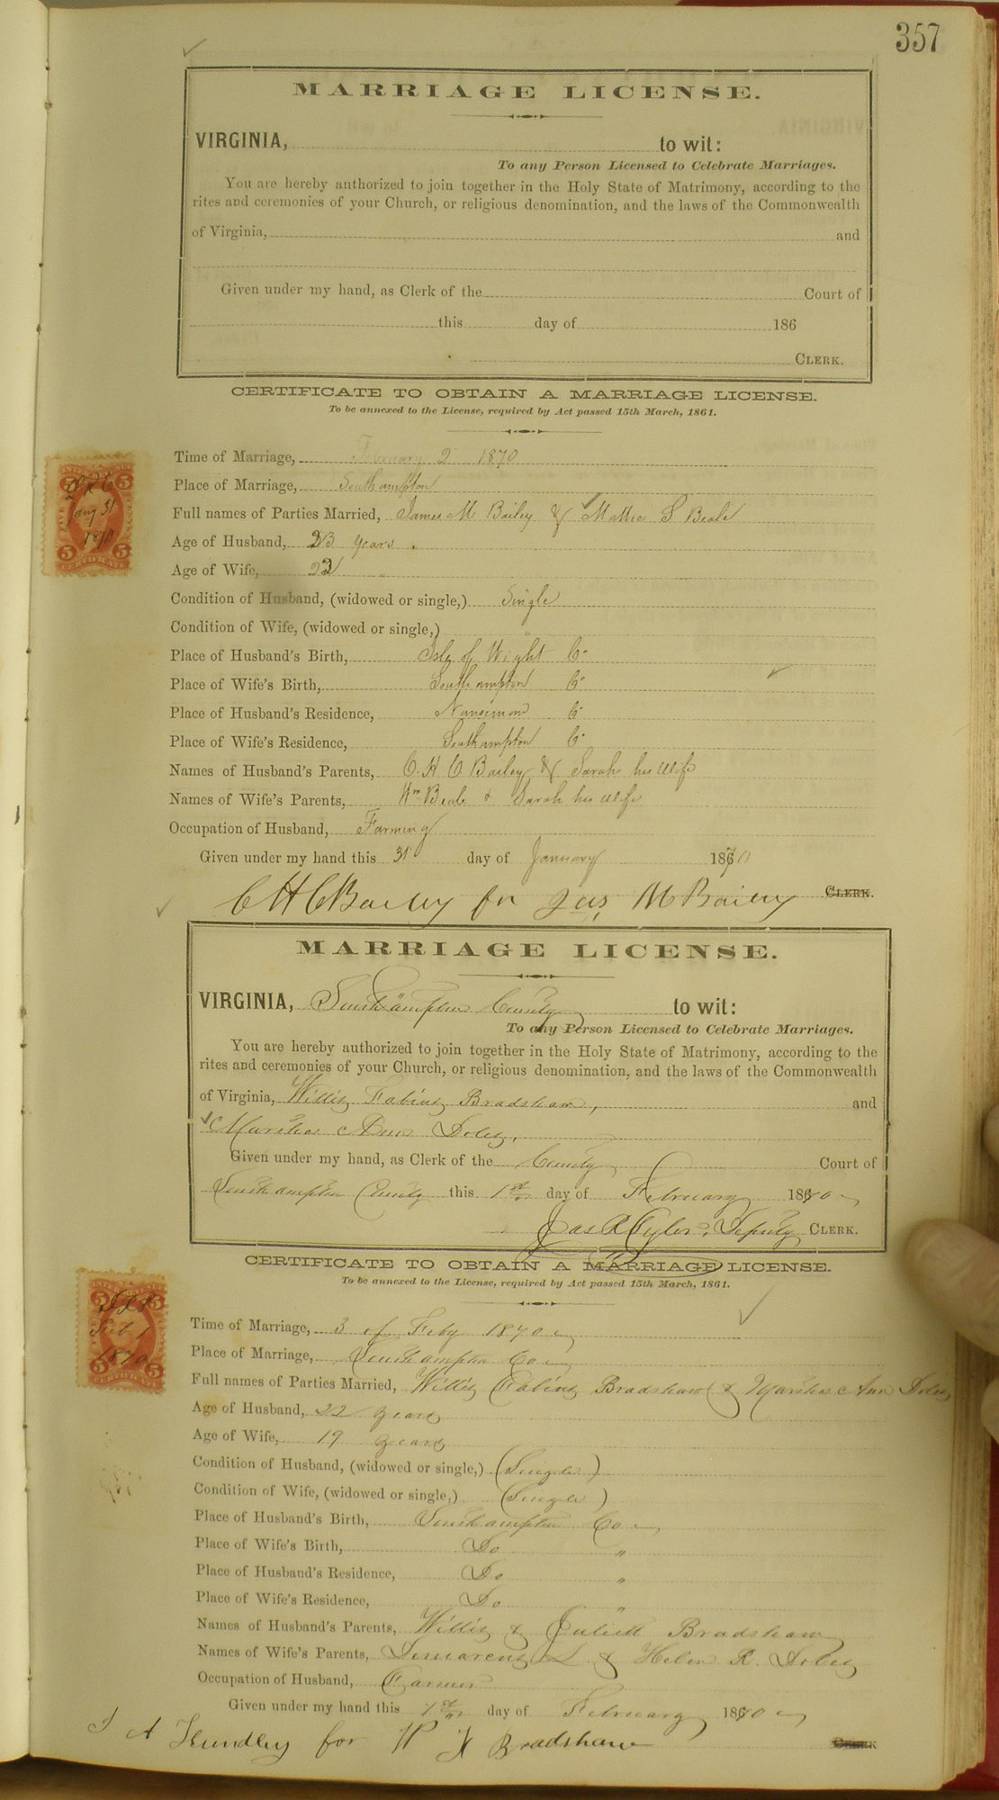 357
MARRIAGE LICENSE.
VIRGINIA, to wit:
To any Person Licensed to Celebrate Marriages.
You are hereby authorized to join together in the Holy State of Matrimony, according to the
rites and ceremonies of your Church, or religious denomination, and the laws of the Commonwealth
of Virginia, and
Given under my hand, as Clerk of the Court of
this day of 186
CLERK.
CERTIFICATE TO OBTAIN A MARRIAGE LICENSE.
To be annexed to the License, required by Act passed 15th March, 1861.
Time of Marriage, 2 1870
Place of Marriage, Southampton
Full names of Parties Married, James M Bailey & Mattie S Beale
Age of Husband, 23 years.
Age of Wife, 22 "
Condition of Husband, (widowed or single,) Single
Condition of Wife, (widowed or single,) "
Place of Husband's Birth, Isle of Wight Co
Place of Wife's Birth, Southampton Co
Place of Husband's Residence, Nansimond Co
Place of Wife's Residence, Southampton Co
Names of Husband's Parents, C. H. C Bailey & Sarah his wife
Names of Wife's Parents, Wm Beale & Sarah his wife
Occupation of Husband, Farming
Given under my hand this 31 day of January 1870
CHC Bailey for Jas M Bailey CLERK.
5 5
Jany 31
1870
5 5
CERTIFICATE
MARRIAGE LICENSE.
VIRGINIA, Southampton County to wit:
To any Person Licensed to Celebrate Marriages.
You are hereby authorized to join together in the Holy State of Matrimony, according to the
rites and ceremonies of your Church, or religious denomination, and the laws of the Commonwealth
of Virginia, Willis Bradshaw, and
Martha Ann
Given under my hand, as Clerk of the County Court of
Southampton County this 1st day of February 1870
Jas R Tyler, Deputy CLERK.
CERTIFICATE TO OBTAIN A MARRIAGE LICENSE.
To be annexed to the License, required by Act passed 15th March, 1861.
5 5
Feb 1
1870
5 5
CERTIFICATE
Time of Marriage, 3 of Feby 1870
Place of Marriage, Southampton Co
Full names of Parties Married, Willis Bradshaw & Martha Ann
Age of Husband, 22 years
Age of Wife, 19 years
Condition of Husband, (widowed or single,) (Single)
Condition of Wife, (widowed or single,) (Single)
Place of Husband's Birth, Southampton Co
Place of Wife's Birth, Do "
Place of Husband's Residence, Do "
Place of Wife's Residence, Do "
Names of Husband's Parents, Willis & Juliett Bradshaw
Names of Wife's Parents, & Helen R.
Occupation of Husband, Farmer
Given under my hand this 1st day of February 1870
Hundley for W F Bradshaw CLERK